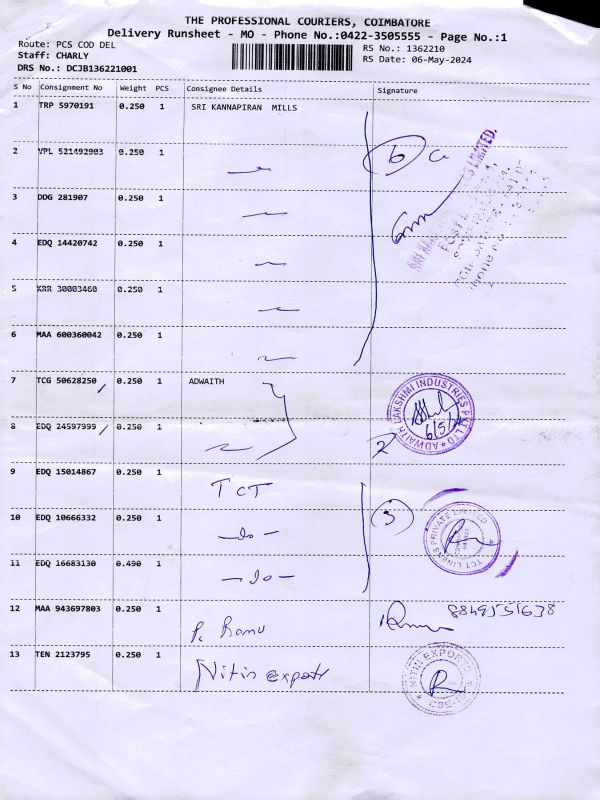 THE PROFESSIONAL COURIERS, COIMBATORE
Delivery Runsheet - MO - Phone No.:0422-3505555 - Page No.:1
Route: PCS COD DEL
Staff: CHARLY
DRS No.: DCJB136221001
RS No.: 1362210
RS Date: 06-May-2024
S No Consignment No Weight PCS Consignee Details Signature
1 TRP 5970191 0.250 1 SRI KANNAPIRAN MILLS
2 VPL 521492903 0.250 1
6
3 DDG 281907 0.250 1
4 EDQ 14420742 0.250 1
5 KRR 30003460 0.250 1
6 MAA 600360042 0.250 1
7 TCG 50628250 0.250 1 ADWAITH
ADWAITH LAKSHMI INDUSTRIES PVT LTD
6/5/24
8 EDQ 24597999 0.250 1
2
9 EDQ 15014867 0.250 1 TCT
10 EDQ 10666332 0.250 1 -do-
3
TCT LINENS PRIVATE LIMITED
11 EDQ 16683130 0.490 1 -do-
12 MAA 943697803 0.250 1 P. Ramu
8849551638
13 TEN 2123795 0.250 1 Nitin Export
NITIN EXPORTS